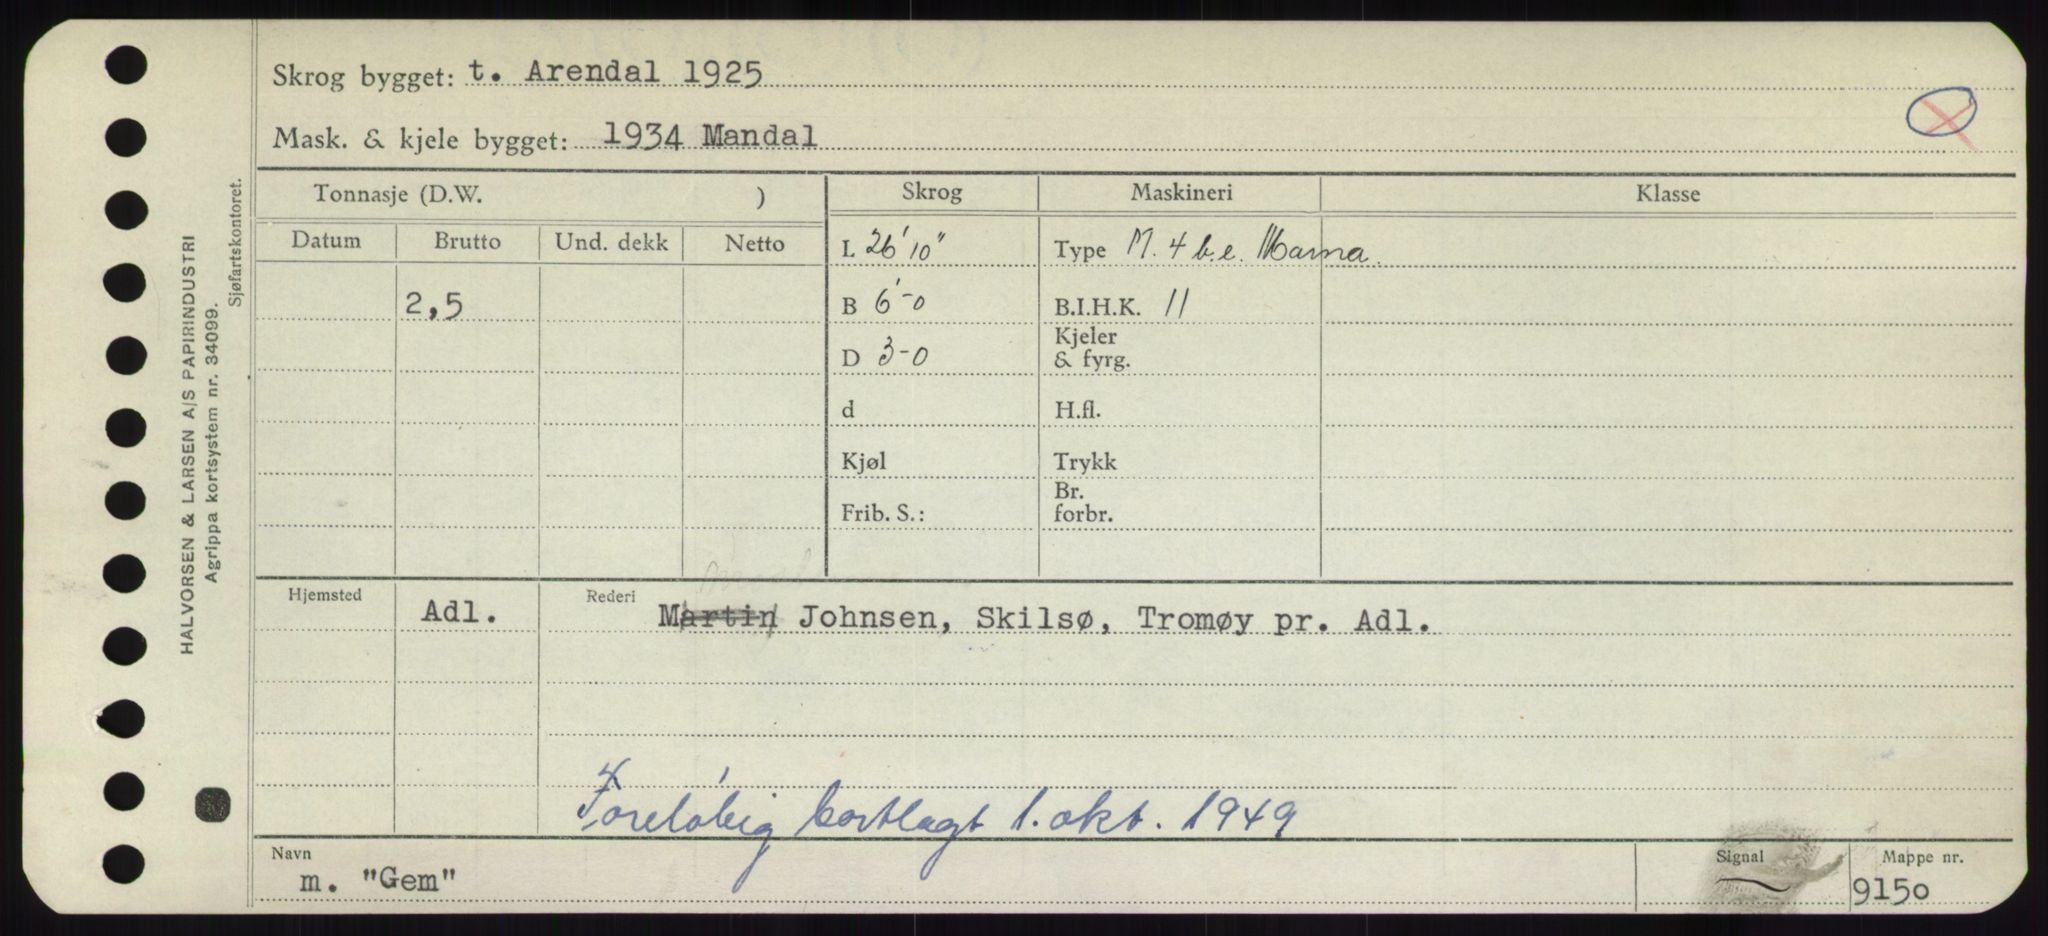 Skrog bygget: t. Arendal 1925
Mask. & kjele bygget: 1934 Mandal
HALVORSEN & LARSEN A/S PAPIRINDUSTRI
Agrippa kortsystem nr. 34099.
Sjøfartskontoret.
Tonnasje (D.W. ) Skrog Maskineri Klasse
Datum Brutto Und. dekk Netto
L 26' 10" Type M. 4 b.e. Marna.
2,5 B 6'-0 B.I.H.K. 11
D 3-0 Kjeler & fyrg.
d H.fl.
Kjøl Trykk
Frib. S.: Br. forbr.
Hjemsted Adl. Rederi Martin Johnsen, Skilsø, Tromøy pr. Adl.
Foreløbig bortlagt 1. okt. 1949
Navn Signal Mappe nr.
m. "Gem" 9150